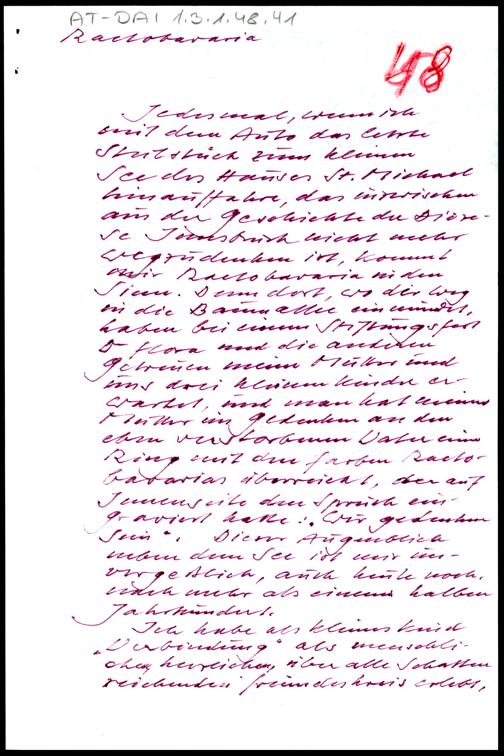 AT-DAI 1.3.1.48.41
Raetobavaria
48
Jedesmal, wenn ich
mit dem Auto das letzte
Steilstück zum kleinen
See des Hauses St. Michael
hinauffahre, das inzwischen
aus der Geschichte der Diöze-
se Innsbruck nicht mehr
wegzudenken ist, kommt
mir Raetobavaria in den
Sinn. Denn dort, wo der Weg
in die Baumallee einmündet,
haben bei einem Stiftungsfest
Dr Flora und die anderen
Getreuen meine Mutter und
uns drei kleinen Kinder er-
wartet, und man hat meiner
Mutter im Gedenken an den
eben verstorbenen Vater einen
Ring mit den Farben Raeto-
bavarias überreicht, der auf
Innenseite den Spruch ein-
graviert hatte: „Wir gedenken
sein". Dieser Augenblick
neben dem See ist mir un-
vergeßlich, auch heute noch,
nach mehr als einem halben
Jahrhundert.
Ich habe als kleines Kind
„Verbindung" als menschli-
chen, herzlichen, über alle Schatten
reichenden Freundeskreis erlebt,